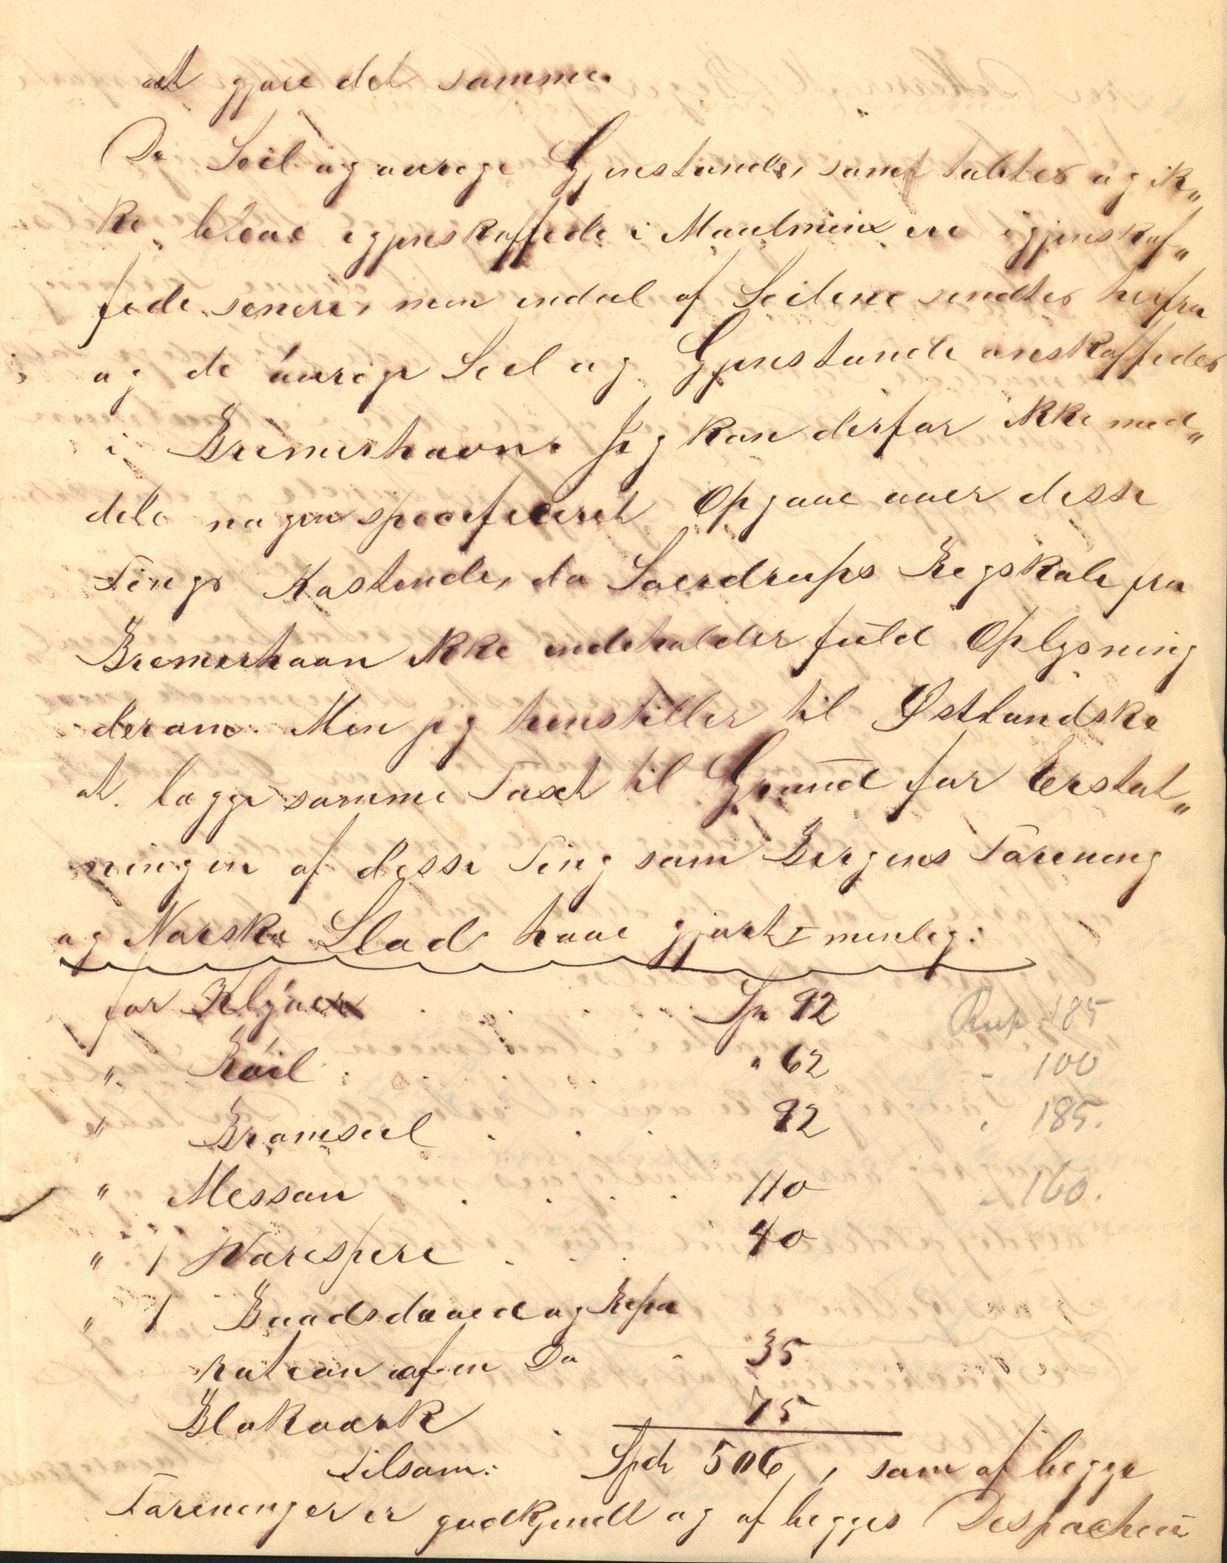 at gjøre det samme.
De Seil og øvrige Gjenstande, samt tabtes og ik„
ke bleve igjenskaffede i Maulmein ere igjenskaf„
fede senere, men endeel af Seilene sendtes herfra
og de øvrige Seil og Gjenstande anskaffedes
i Bremerhavn. Jeg kan derfor ikke med„
dele nogen specificeret Opgave over disse
Tings Kostende, da Sverdrups Regskab fra
Bremerhavn ikke indeholder fuld Oplysning
derom. Men jeg henstiller til Østlandske
at lægge samme Taxt til Grund for Erstat„
ningen af disse Ting som Bergens Forening
og Norske Llod have gjort nemlig:
for Klyver . . . . . Sp 92 Rup 185
„ Röil . . . . . „ 62 - 100
„ Bramseil . . . 92 „ 185.
„ Messan . . . . 110 - 160.
„ 1 Varespire . . . 40
„ 1 Baadsdaved og Repa
ration af en Do - 35
Blokværk . 75
Tilsam: Spd 506, som af begge
Foreninger er godkjendt og af begges Despacheu